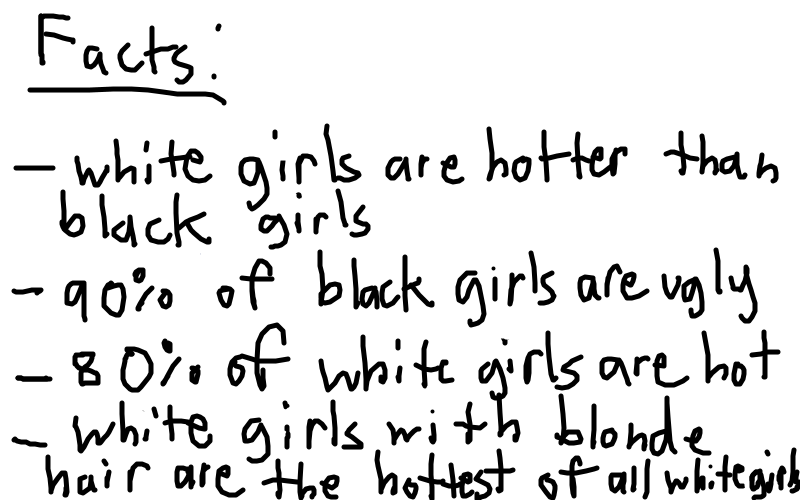 Facts:
- white girls are hotter than
black girls
- 90% of black girls are ugly
- 80% of white girls are hot
- white girls with blonde
hair are the hottest of all white girls